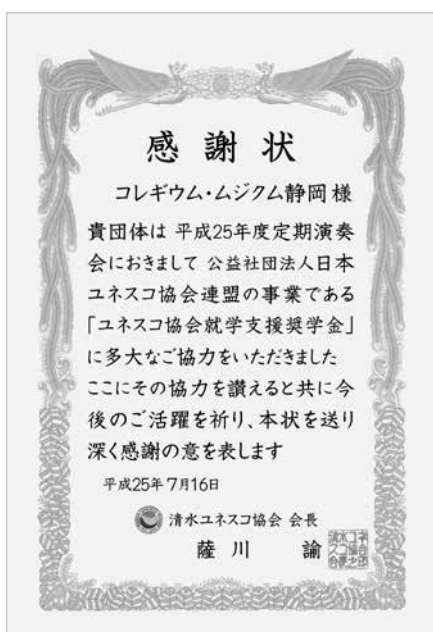 感謝状
コレギウム・ムジクム静岡 様
貴団体は 平成25年度定期演奏
会におきまして 公益社団法人日本
ユネスコ協会連盟の事業である
「ユネスコ協会就学支援奨学金」
に多大なご協力をいただきました
ここにその協力を讃えると共に今
後のご活躍を祈り、本状を送り
深く感謝の意を表します
平成25年7月16日
清水ユネスコ協会 会長
薩川 諭